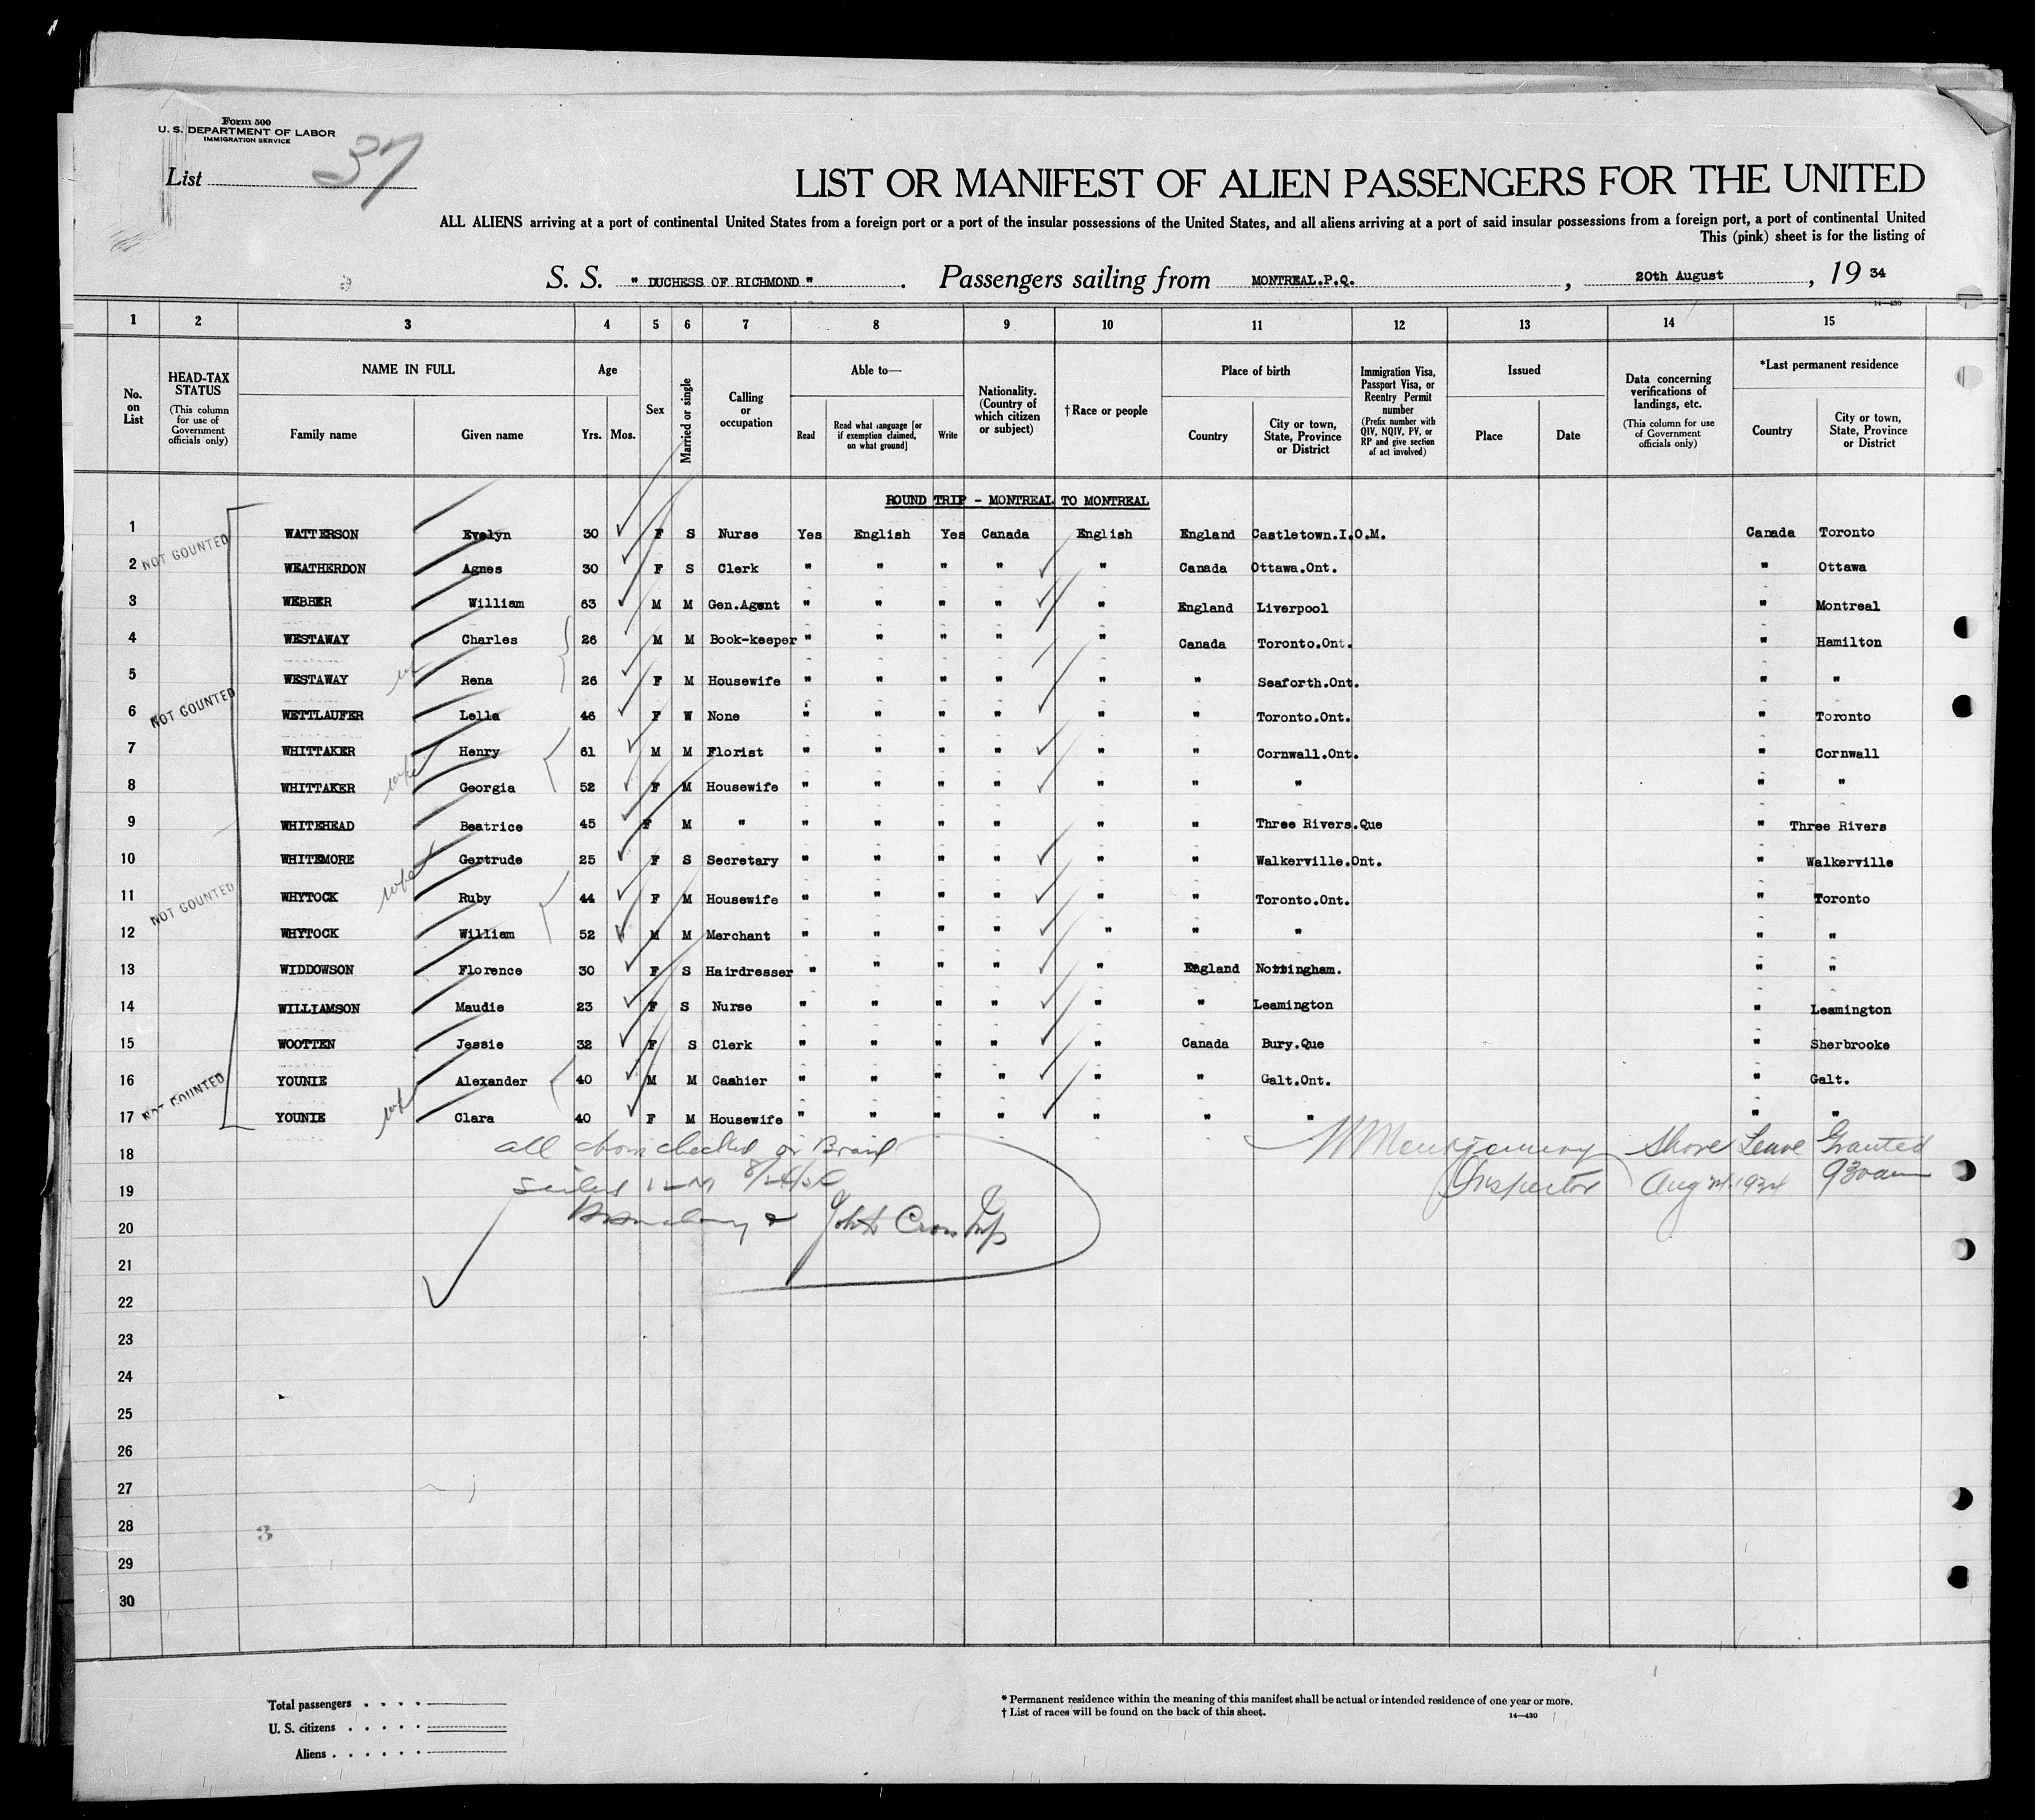 Form 500
U. S. DEPARTMENT OF LABOR
IMMIGRATION SERVICE
List 37
LIST OR MANIFEST OF ALIEN PASSENGERS FOR THE UNITED
ALL ALIENS arriving at a port of continental United States from a foreign port or a port of the insular possessions of the United States, and all aliens arriving at a port of said insular possessions from a foreign port, a port of continental United
This (pink) sheet is for the listing of
S. S. " DUCHESS OF RICHMOND " . Passengers sailing from MONTREAL.P.Q. , 20th August , 19 34
14—430
1 2 3 4 5 6 7 8 9 10 11 12 13 14 15
No. on List
HEAD-TAX STATUS (This column for use of Government officials only)
NAME IN FULL Family name Given name
Age Yrs. Mos.
Sex
Married or single
Calling or occupation
Able to— Read Read what language [or if exemption claimed, on what ground] Write
Nationality. (Country of which citizen or subject)
†Race or people
Place of birth Country City or town, State, Province or District
Immigration Visa, Passport Visa, or Reentry Permit number (Prefix number with QIV, NQIV, PV, or RP and give section of act involved)
Issued Place Date
Data concerning verifications of landings, etc. (This column for use of Government officials only)
*Last permanent residence Country City or town, State, Province or District
ROUND TRIP - MONTREAL TO MONTREAL
1 WATTERSON Evelyn 30 F S Nurse Yes English Yes Canada English England Castletown.I.O.M. Canada Toronto
NOT COUNTED
2 WEATHERDON Agnes 30 F S Clerk " " " " " Canada Ottawa.Ont. " Ottawa
3 WEBBER William 63 M M Gen.Agent " " " " " England Liverpool " Montreal
4 WESTAWAY Charles 26 M M Book-keeper " " " " " Canada Toronto.Ont. " Hamilton
5 WESTAWAY Rena 26 F M Housewife " " " " " " Seaforth.Ont. " "
NOT COUNTED
6 WETTLAUFER Lella 46 F W None " " " " " " Toronto.Ont. " Toronto
7 WHITTAKER Henry 61 M M Florist " " " " " " Cornwall.Ont. " Cornwall
8 WHITTAKER wife Georgia 52 F M Housewife " " " " " " " " "
9 WHITEHEAD Beatrice 45 F M " " " " " " " Three Rivers.Que " Three Rivers
10 WHITEMORE Gertrude 25 F S Secretary " " " " " " Walkerville.Ont. " Walkerville
NOT COUNTED
11 WHYTOCK wife Ruby 44 F M Housewife " " " " " " Toronto.Ont. " Toronto
12 WHYTOCK William 52 M M Merchant " " " " " " " " "
13 WIDDOWSON Florence 30 F S Hairdresser " " " " " England Nottingham. " "
14 WILLIAMSON Maudie 23 F S Nurse " " " " " " Leamington " Leamington
15 WOOTTEN Jessie 32 F S Clerk " " " " " Canada Bury.Que " Sherbrooke
16 YOUNIE Alexander 40 M M Cashier " " " " " " Galt.Ont. " Galt.
NOT COUNTED
17 YOUNIE Clara 40 F M Housewife " " " " " " " " "
18 all above checked on Board Montgomery Shore Leave Granted
19 sailed Inspector Aug 24 1934 9 30 am
20 John Cross Insp
21
22
23
24
25
26
27
28 3
29
30
Total passengers . . . .
U. S. citizens . . . . .
Aliens . . . . . .
* Permanent residence within the meaning of this manifest shall be actual or intended residence of one year or more.
† List of races will be found on the back of this sheet.
14—430